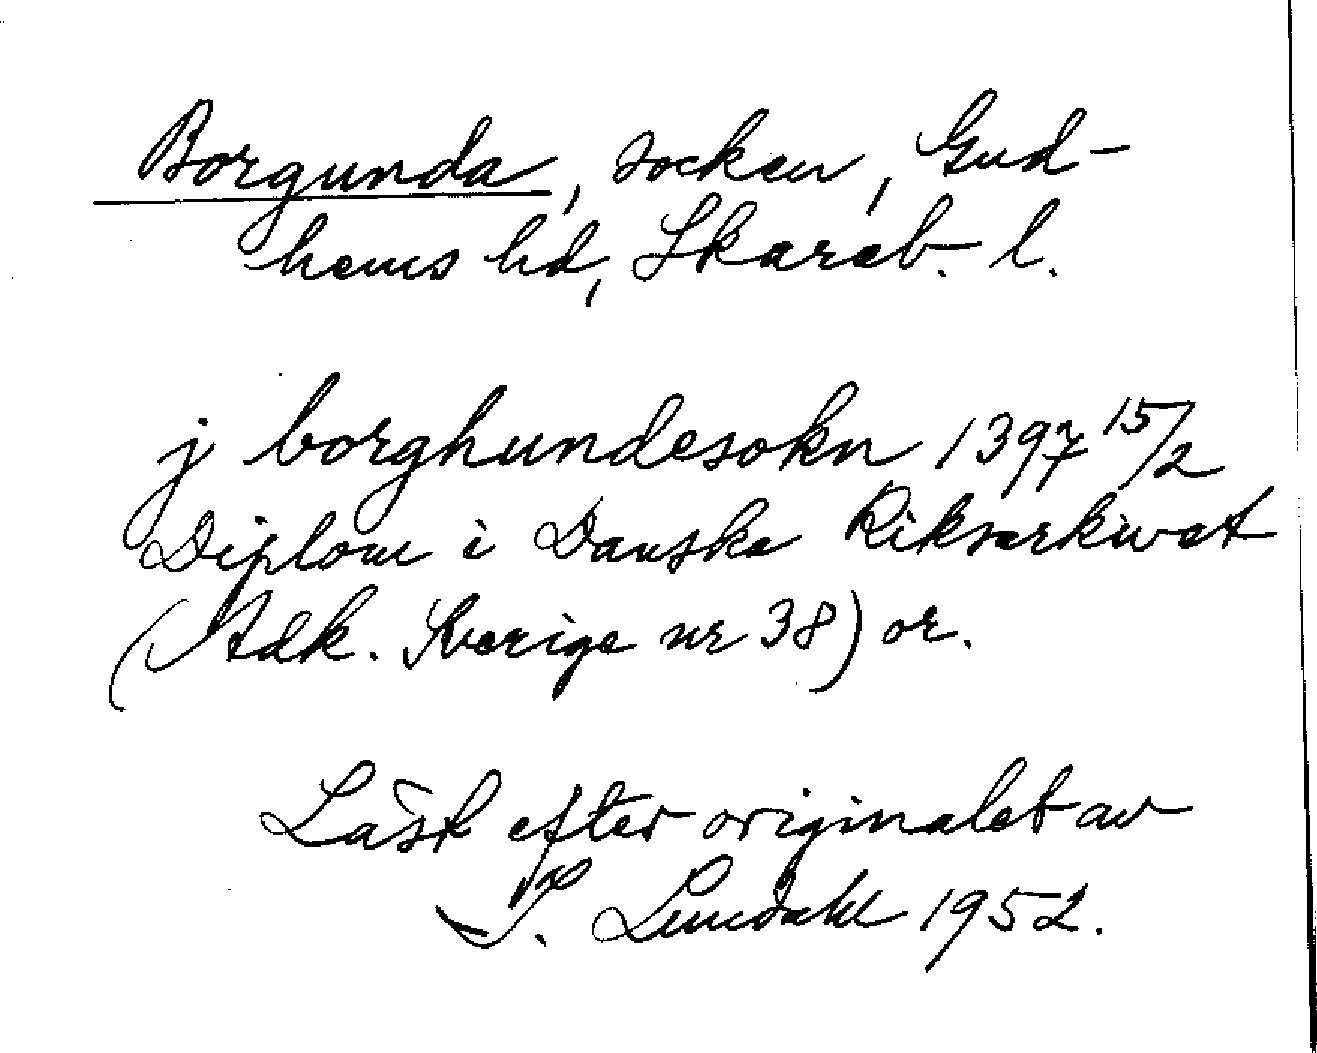 Borgunda, socken, Gud-
hems hd, Skarab. l.
j borghundesokn 1397 15/2
Diplom i Danska Riksarkivet
(Adk. Sverige nr 38) or.
Läst efter originalet av
I. Lundahl 1952.